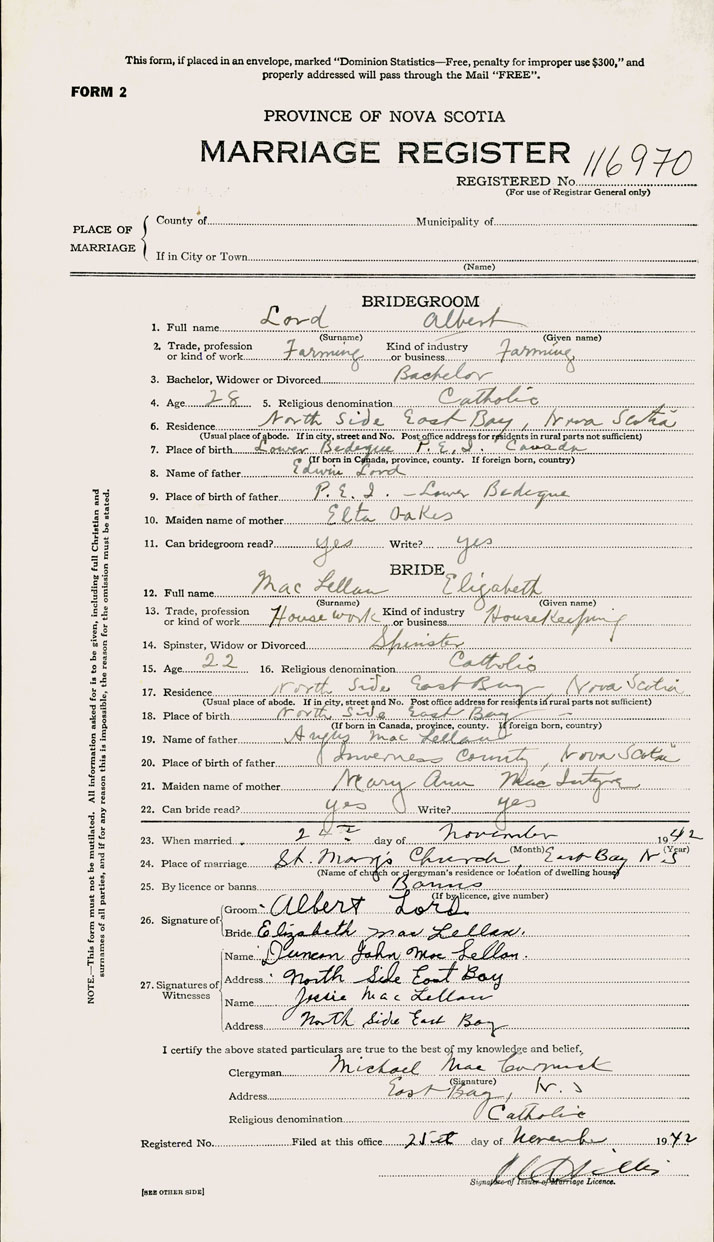 This form, if placed in an envelope, marked "Dominion Statistics—Free, penalty for improper use $300," and
properly addressed will pass through the Mail "FREE".
FORM 2
PROVINCE OF NOVA SCOTIA
MARRIAGE REGISTER 116970
REGISTERED No.
(For use of Registrar General only)
PLACE OF MARRIAGE
County of Municipality of
If in City or Town
(Name)
BRIDEGROOM
1. Full name Lord Albert
(Surname) (Given name)
2. Trade, profession or kind of work Farming Kind of industry or business Farming
3. Bachelor, Widower or Divorced Bachelor
4. Age 28 5. Religious denomination Catholic
6. Residence North Side East Bay, Nova Scotia
(Usual place of abode. If in city, street and No. Post office address for residents in rural parts not sufficient)
7. Place of birth Lower Bedeque P.E.I. Canada
(If born in Canada, province, county. If foreign born, country)
8. Name of father Edwin Lord
9. Place of birth of father P.E.I. - Lower Bedeque
10. Maiden name of mother Elta Oakes
11. Can bridegroom read? yes Write? yes
BRIDE
12. Full name Mac Lellan Elizabeth
(Surname) (Given name)
13. Trade, profession or kind of work House work Kind of industry or business HouseKeeping
14. Spinster, Widow or Divorced Spinster
15. Age 22 16. Religious denomination Catholic
17. Residence North Side East Bay, Nova Scotia
(Usual place of abode. If in city, street and No. Post office address for residents in rural parts not sufficient)
18. Place of birth North Side East Bay
(If born in Canada, province, county. If foreign born, country)
19. Name of father Angus Mac Lellan
20. Place of birth of father Inverness County, Nova Scotia
21. Maiden name of mother Mary Ann Mac Intyre
22. Can bride read? yes Write? yes
23. When married 24th day of November 1942
(Month) (Year)
24. Place of marriage St. Mary's Church, East Bay N.S
(Name of church or clergyman's residence or location of dwelling house)
25. By licence or banns Banns
(If by licence, give number)
26. Signature of
Groom Albert Lord
Bride Elizabeth Mac Lellan.
27. Signatures of Witnesses
Name Duncan John Mac Lellan.
Address North Side East Bay
Name Josie Mac Lellan
Address North Side East Bay
I certify the above stated particulars are true to the best of my knowledge and belief,
Clergyman Michael Mac Cormick
(Signature)
Address East Bay, N.S
Religious denomination Catholic
Registered No. Filed at this office 25th day of November 1942
Signature of Issuer of Marriage Licence.
[SEE OTHER SIDE]
NOTE.—This form must not be mutilated. All information asked for is to be given, including full Christian and
surnames of all parties, and if for any reason this is impossible, the reason for the omission must be stated.